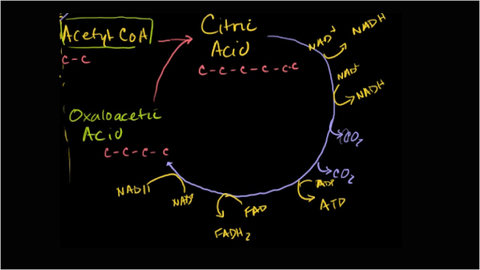 Acetyl CoA
C-C
Citric
Acid
C-C-C-C-C-C
Oxaloacetic
Acid
C-C-C-C
NAD+
NADH
NAD+
NADH
CO2
CO2
ADP
ATP
FAD
FADH2
NAD+
NADH